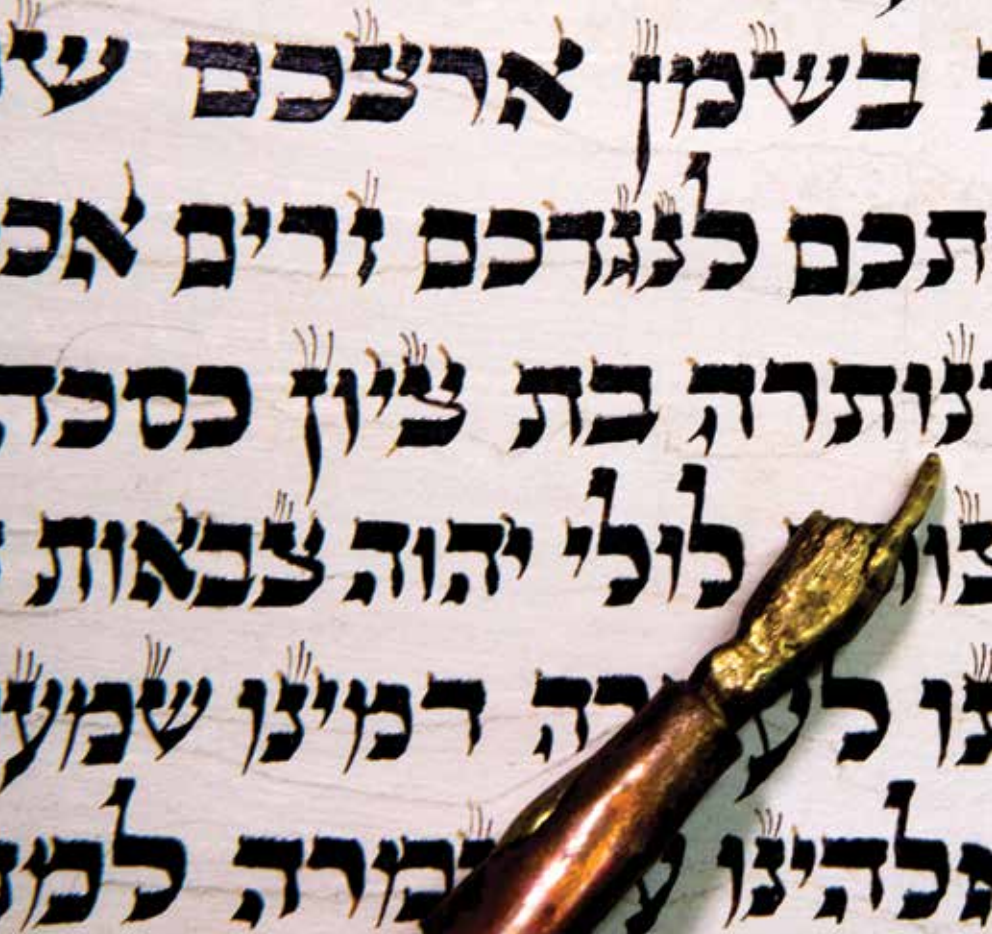 בשמן ארצכם ש
תכם לנגדכם זרים אכ
נותרה בת ציון כסכה
צו לולי יהוה צבאות
נו לע רה דמינו שמע
אלהינו מרה למ